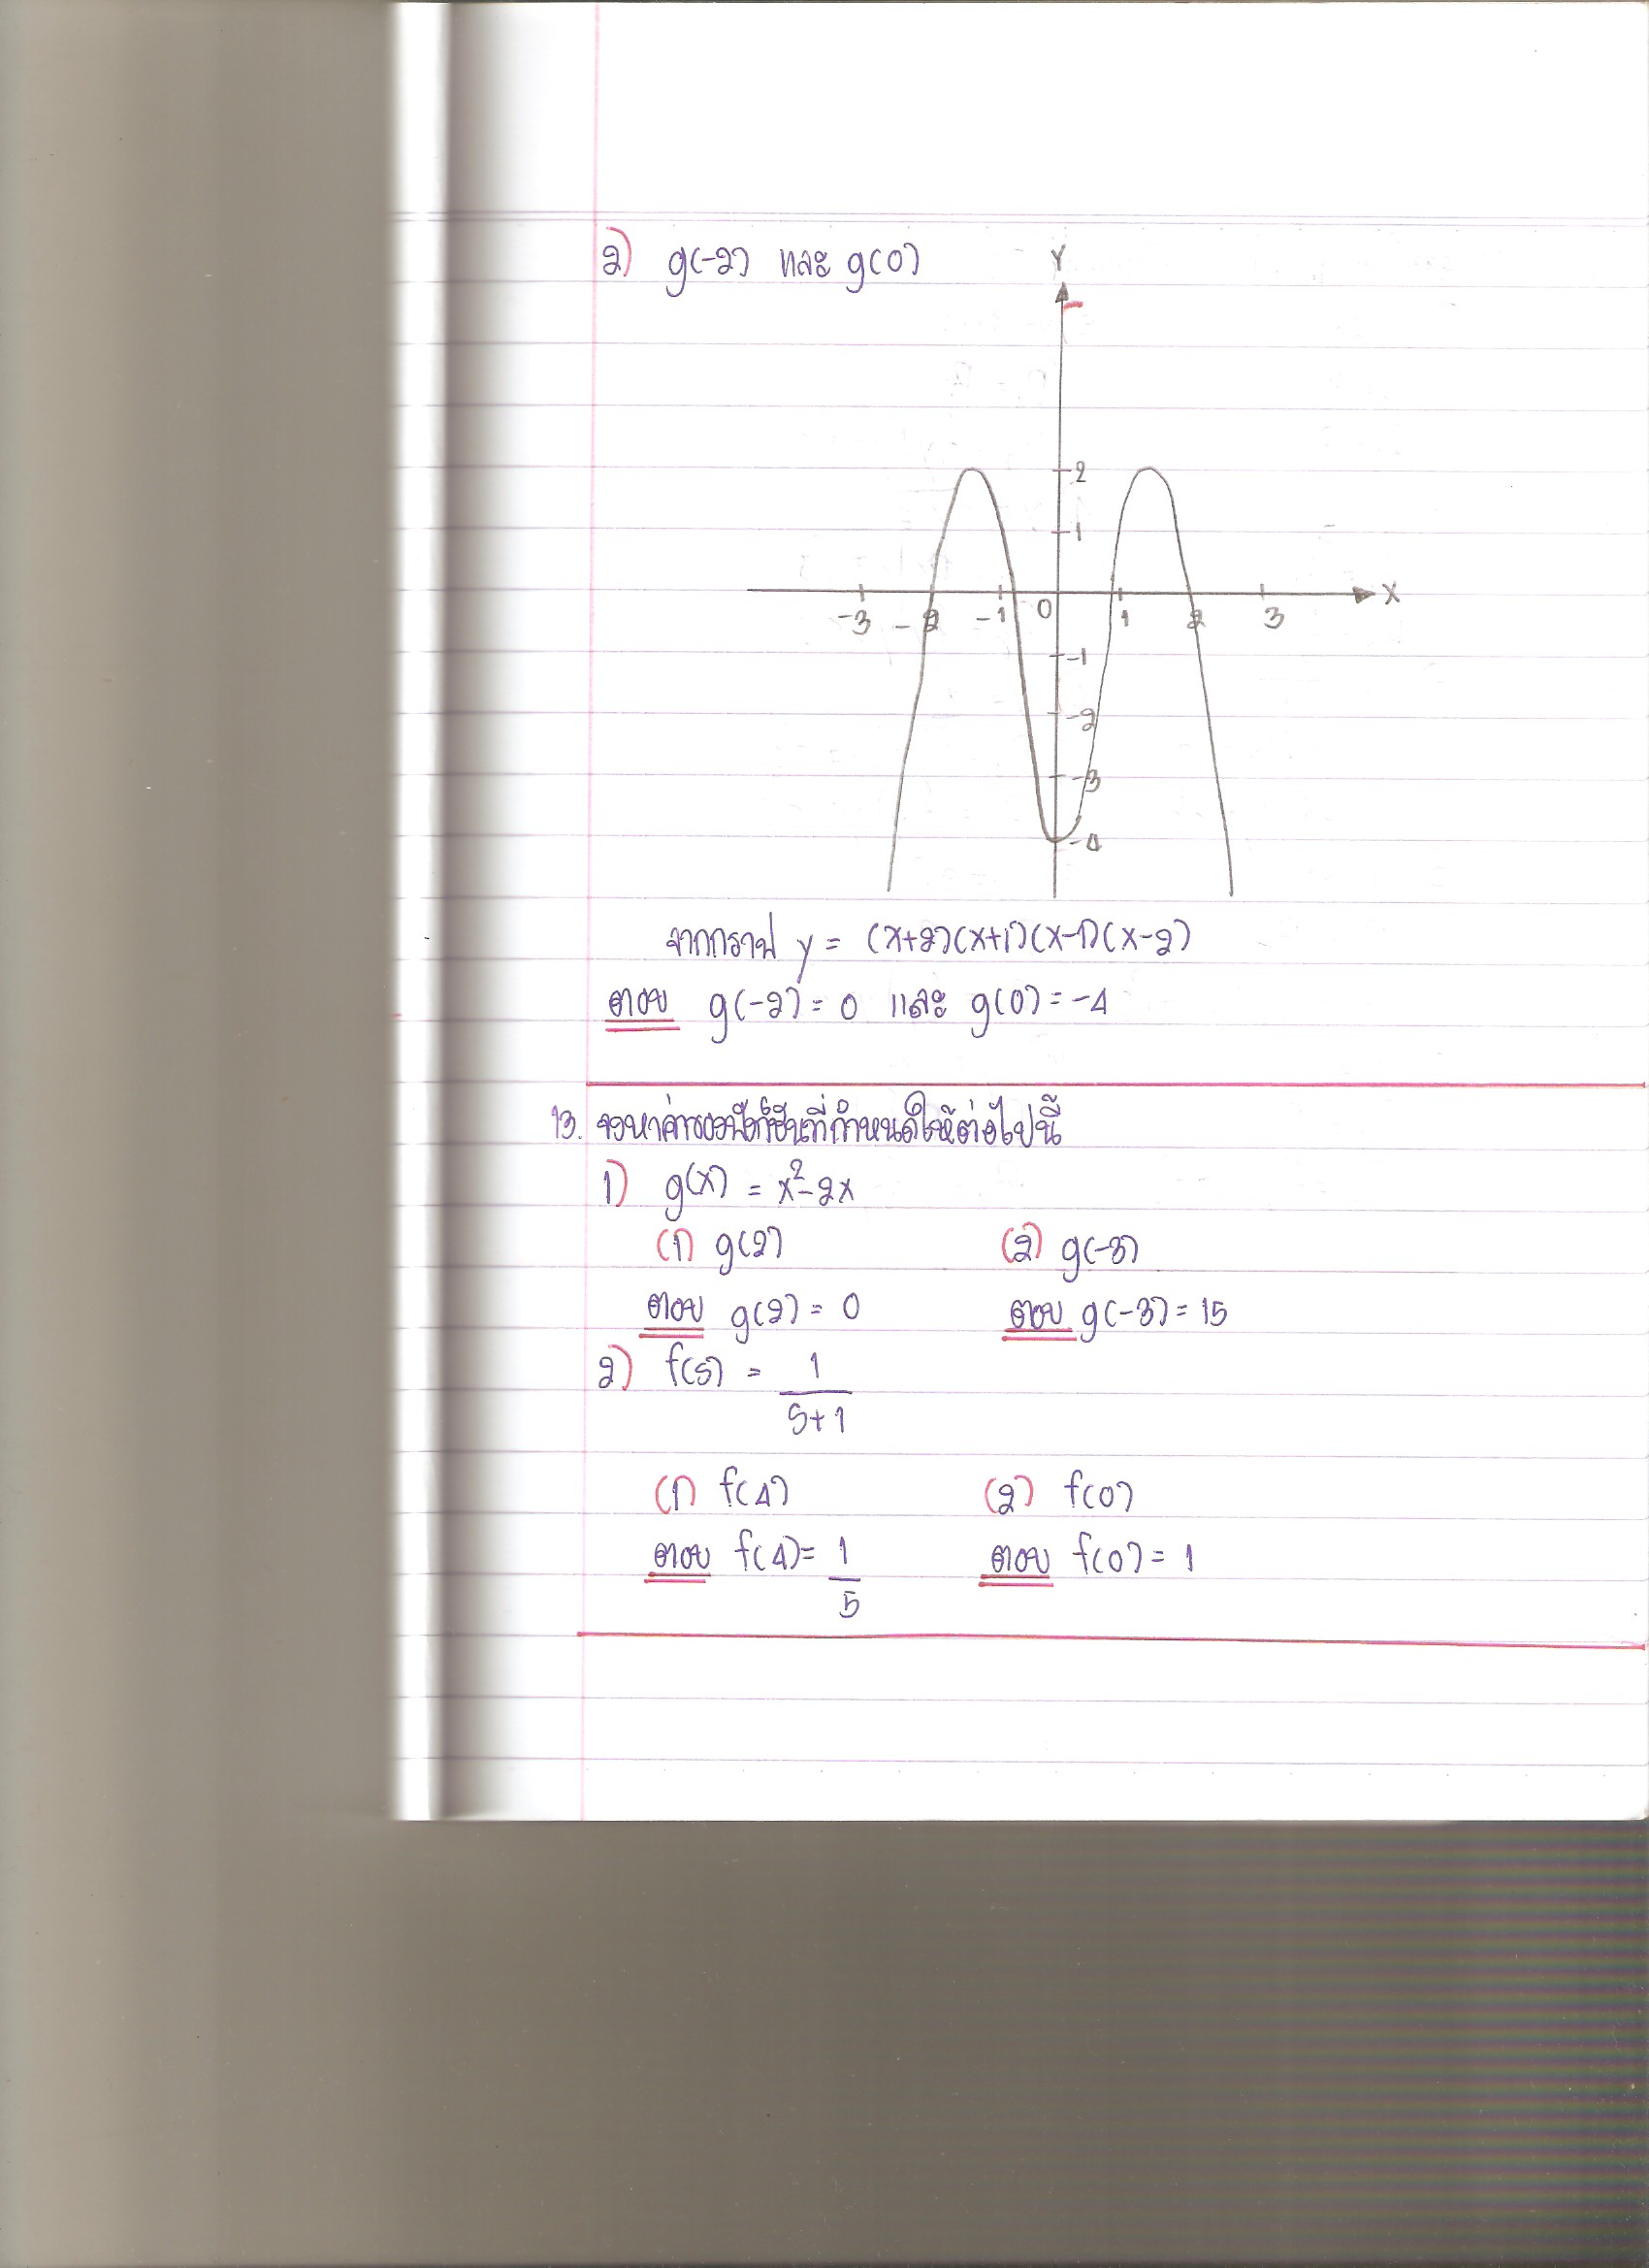 2) g(-2) และ g(0)
Y
2
1
-3 -2 -1 0 1 2 3 X
-1
-2
-3
-4
จากกราฟ y = (x+2)(x+1)(x-1)(x-2)
ตอบ g(-2) = 0 และ g(0) = -4
13. จงหาค่าของฟังก์ชันที่กำหนดให้ต่อไปนี้
1) g(x) = x²-2x
(1) g(2) (2) g(-3)
ตอบ g(2) = 0 ตอบ g(-3) = 15
2) f(s) = 1
s+1
(1) f(4) (2) f(0)
ตอบ f(4) = 1 ตอบ f(0) = 1
5